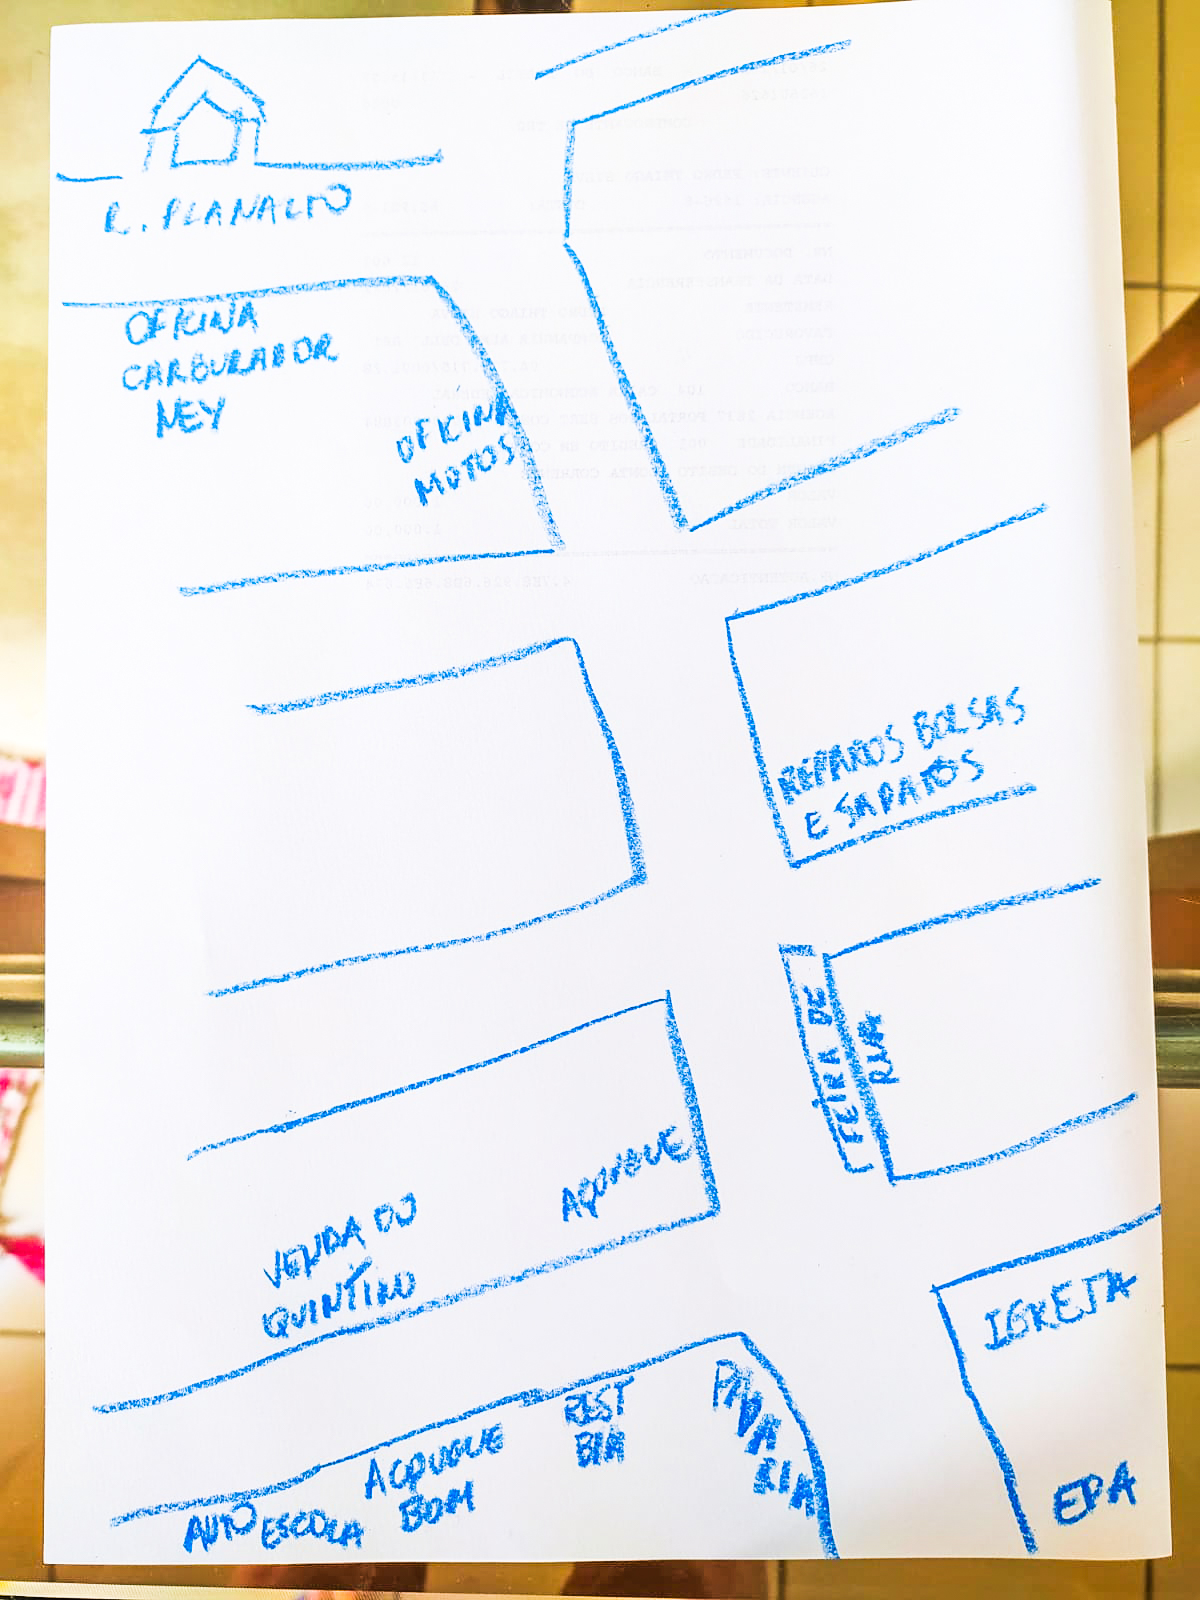 R. PLANALTO
OFICINA
CARBURADOR
NEY
OFICINA
MOTOS
REPAROS BOLSAS
E SAPATOS
FEIRA DE
RUA
AÇOUGUE
VENDA DO
QUINTINO
IGREJA
PADARIA
REST
BIA
AÇOUGUE
BOM
AUTO ESCOLA
EPA